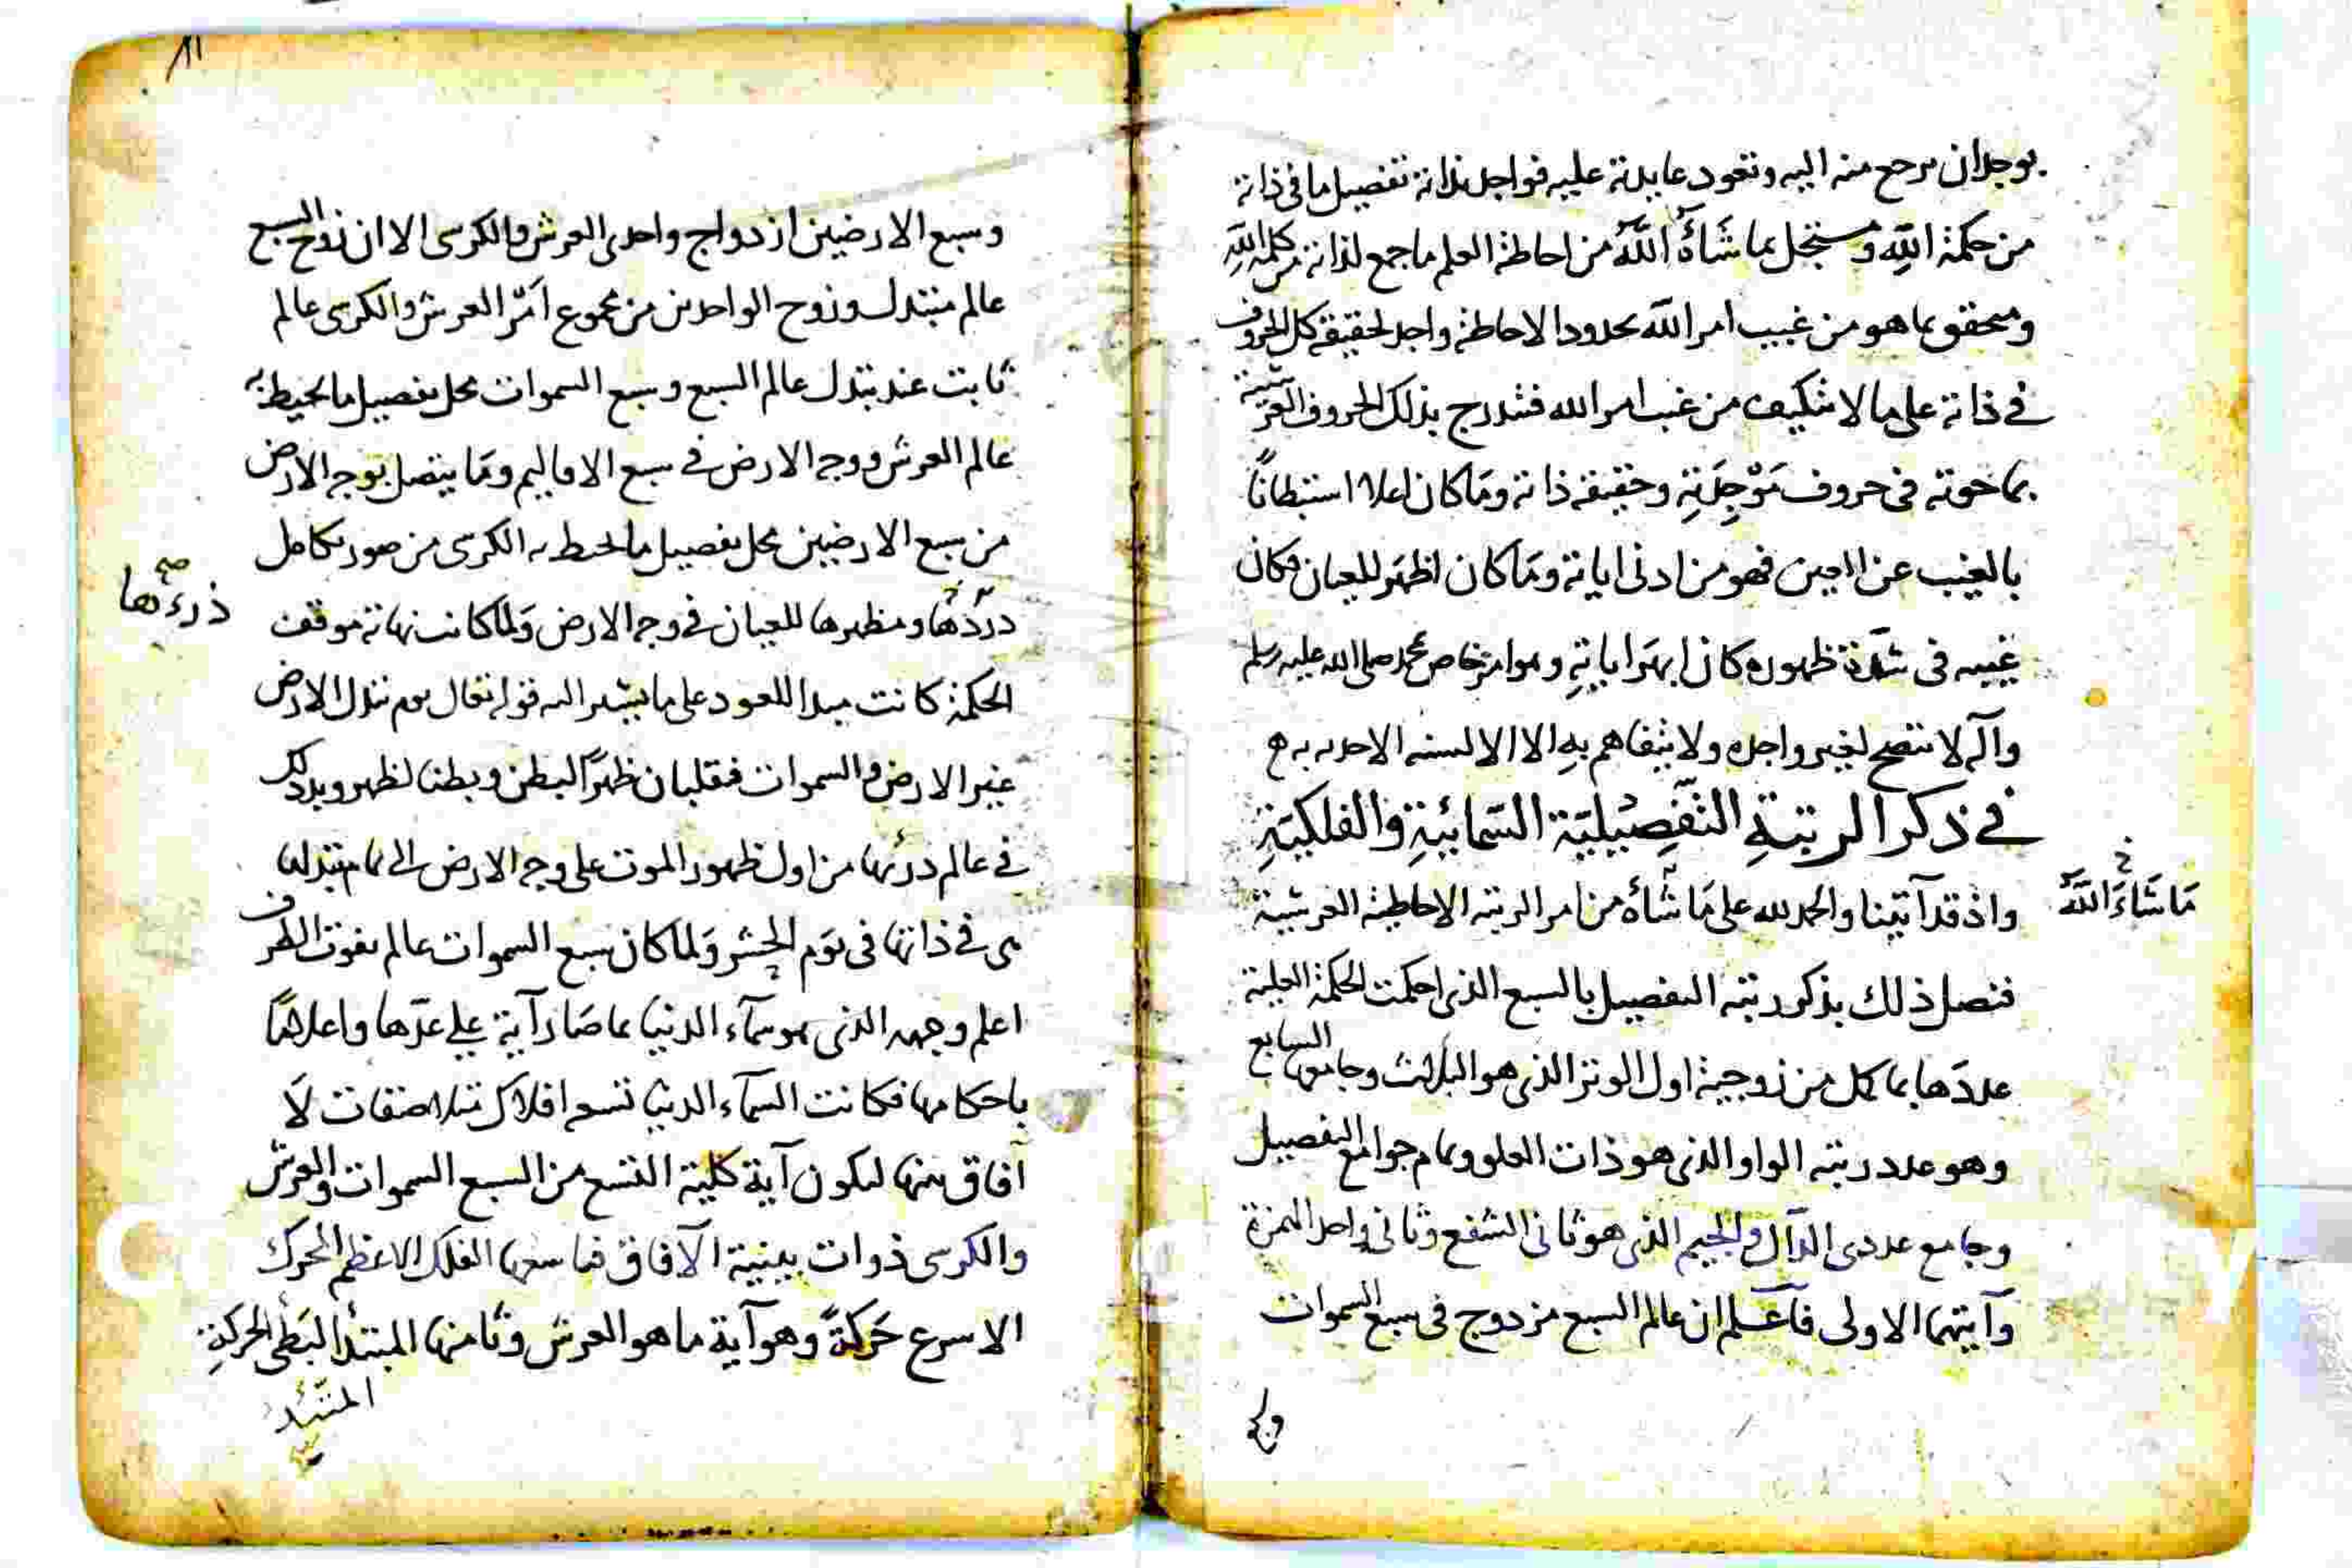 بوجدان يرجع منه اليه وتعود عايدته عليه فواجد بذاته تفصيل ما فى ذاته
من حكمة الله ومستجل بما شاء الله من احاطة العلم ما جمع لذاته من كلمة الله
ومتحقق بما هو من غيب امر الله بحدود الاحاطة واجد لحقيقة كل الحروف
فى ذاته على ما لا تتكيف من غيب امر الله فتندرج بذلك الحروف العرشية
بما حوته فى حروف موجدته وحقيقة ذاته وما كان اعلا استبطانا
بالغيب عن العين فهو من ادنى اياته وما كان اظهر للعيان مكان
غيبه فى شدة ظهوره كان ابهر اياته وهو امر خاص بمحمد صلى الله عليه وسلم
وآله لا تتضح لغير واجده ولا يتفاهم به الا الالسنة الاحدية به
فى ذكر الرتبة التفصيلية السمائية والفلكية
واذ قد آتينا والحمد لله على ما شاء من امر الرتبة الاحاطية العرشية
ما شاء الله
فنصل ذلك بذكر رتبة التفصيل بالسبع الذى احكمت الحكمة العلية
عددها بما كمل من زوجية اول الوتر الذى هو الثلاث وجامعها السابع
وهو عدد رتبة الواو الذى هو ذات العلو وتمام جوامع التفصيل
وجامع عددى الدال والجيم الذى هو ثانى الشفع وثانى واحد الهمزة
وآيتها الاولى فاعلم ان عالم السبع مزدوج فى سبع السموات
وسبع الارضين ازدواج واحدى العرش والكرسى الا ان زوج السبع
عالم متبدل وزوج الواحدين من مجموع امر العرش والكرسى عالم
ثابت عند تبدل عالم السبع وسبع السموات محل تفصيل ما يحيط به
عالم العرش ووجه الارض فى سبع الاقاليم وما يتصل بوجه الارض
من سبع الارضين محل تفصيل ما يحيط به الكرسى من صور تكامل
ذرءتها صح
ومظهرها للعيان فى وجه الارض ولما كانت نهاية موقف
الحكمة كانت مبدا للعود على ما يشير اليه قوله تعالى يوم تبدل الارض
غير الارض والسموات فتقلبان ظهرا لبطن وبطنا لظهر وبذلك
فى عالم درئها من اول ظهور الموت على وجه الارض الى تمام تبدلها
هى فى ذاتها فى يوم الحشر ولما كان سبع السموات عالم يفوت الطرف
اعلم وجهه الذى هو سماء الدنيا بما صار آية على عدها واعلاما
باحكامها فكانت السماء الدنيا تسع افلاك متلاصقات لا
آفاق بينها لتكون آية كلية التسع من السبع السموات والعرش
والكرسى ذوات بينية الآفاق فتاسعها الفلك الاعظم المحرك
الاسرع حركة وهو آية ما هو العرش وثامنها المتئد البطئ الحركة
المتئد